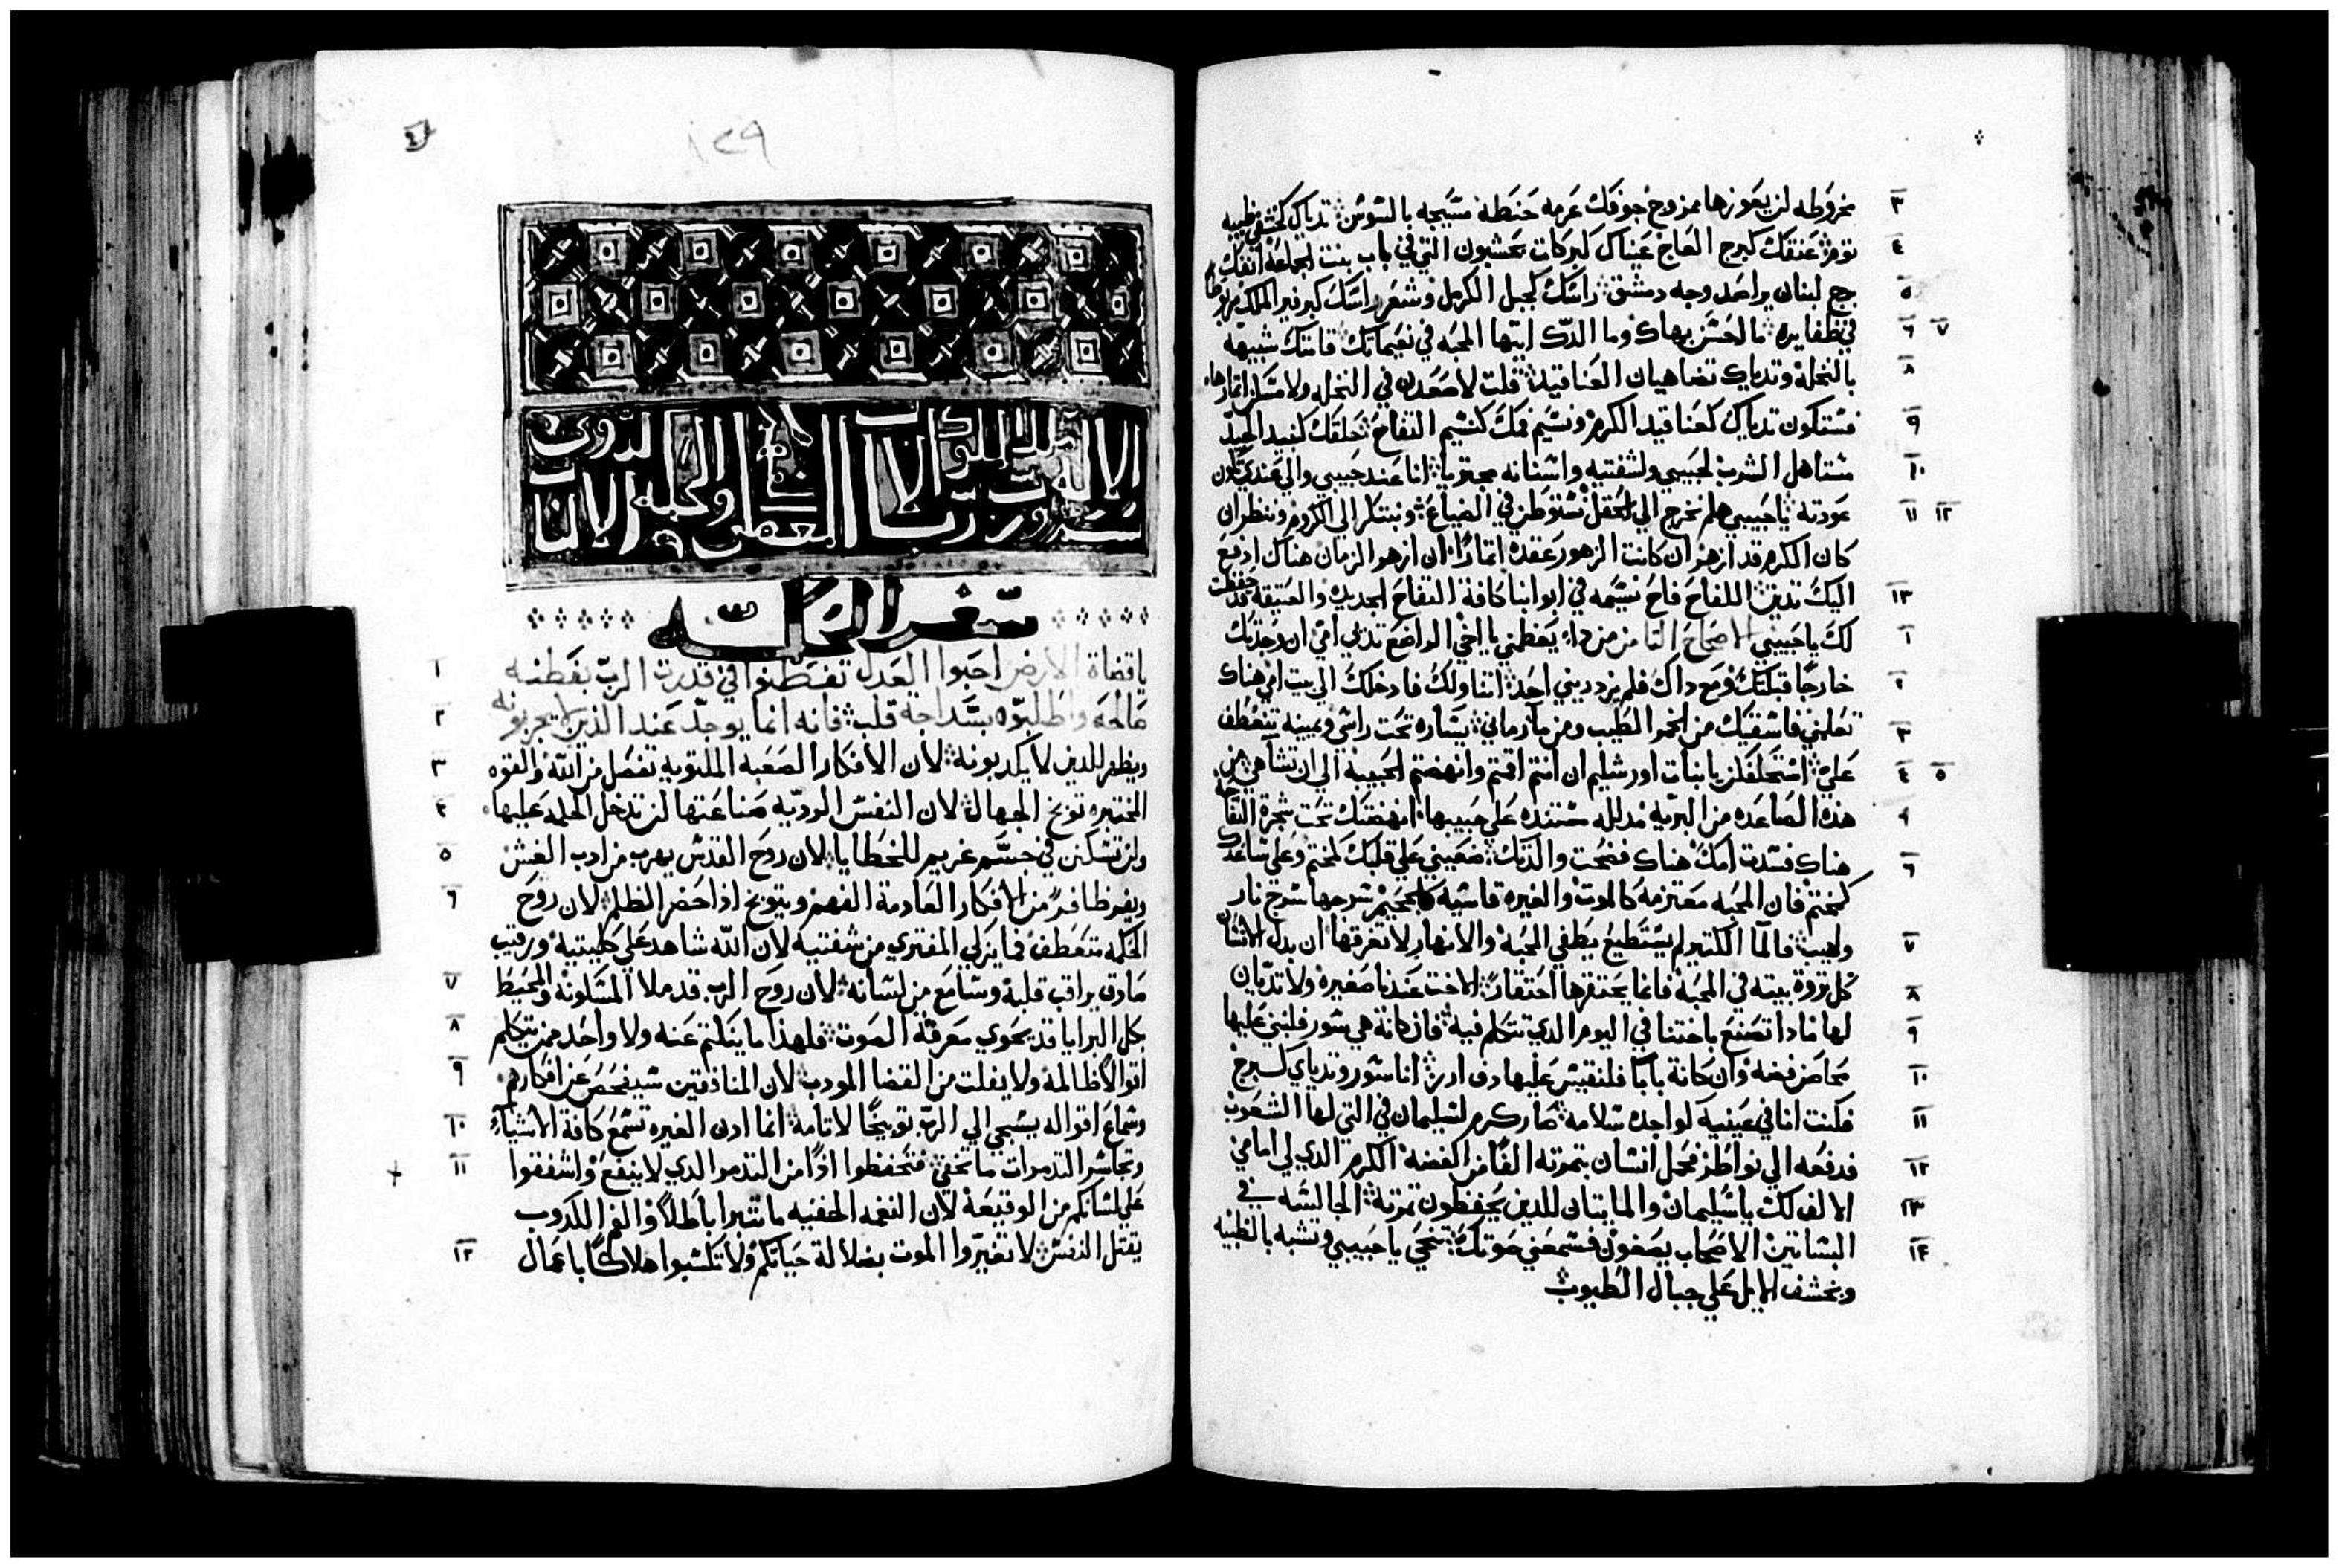 ٣ مخروطه لن يعوزها ممزوج جوفك عرمه حنطة مسيجه بالسوسن ثدياك كخشفي ظبيه
٤ توم عنقك كبرج العاج عيناك كبركات بحشبون التي في باب بنت الجماعة انفك
٥ لبنان يراصد وجه دمشق راسك كجبل الكرمل وشعر راسك كبرفير الملك مربوطا
٦ ٧ في ظفايره ما احسن بهاك وما الدك ايتها المحبه في نعيماتك قامتك شبيهه
٨ بالنخلة وتدياك تضاهيان العناقيد قلت لاصعدن في النخله ولامسكن اتمارها
٩ فستكون تدياك كعناقيد الكرم ونسيم فمك كنسيم التفاح حلقك كنبيد الجيد
١٠ مستاهل الشرب لحبيبي ولشفتيه واسنانه مجتريا انا عند حبيبي والي عندي تكون
١١ ١٢ عودته يا حبيبي هلم نخرج الي الحقل نستوطن في الضياع ونبتكر الي الكروم وننظر ان
كان الكرم قد ازهر ان كانت الزهور عقدة اتمارًا ان ازهر الزمان هناك ادفع
١٣ اليك تديي اللفاح فاح نسيمه في ابوابنا كافة التفاح الجديده والعتيقة قد حفظت
١ لك يا حبيبي الاصحاح التامن من داا يعطني يا اخي الراضع تدي امي ان وجدتك
٢ خارجًا قبلتك ومع داك فلم يزدريني احد اتناولك فادخلك الي بيت امي هناك
٣ تعلمني فاسقيك من الخمر الطيب ومن ما رماني يساره تحت راسي ويمينه تتعطف
٤ ٥ علي استحلفكن يا بنات اورشليم ان انتم اقمتم وانهضتم الحبيبة الي ان تشاهي من
هده الصاعده من البريه مدلله مستنده علي حبيبها انهضتك تحت شجرة التفاحه
٦ هناك فسدت امك هناك فضحت والدتك ضعيني علي قلبك كختم وعلي ساعدك
كختم فان المحبه معتزمه كالموت والغيره قاسيه كالجحيم سرجها سرج نار
٧ ولهيب فالما الكتير لم يستطيع يطفي المحبة والانهار لا تغرقها ان بدل الانسان
٨ كل تروة بيته في المحبة فانما يحتقرها احتقارًا الاخت عندنا صغيره ولا تديان
٩ لها مادا نصنع باختنا في اليوم الدي تتكلم فيه فان كانة هي سور فلنبني عليها
١٠ محاصن فضه وان كانة بابًا فلنقيس عليها دف ارز انا سور وتدياي كبرج
١١ فكنت انا في عينيه كواجده سلامه صار كرم لسليمان في التي لها الشعوب
١٢ فدفعه الي نواطر فحمل انسان بتمرته الفًا من الفضة الكرم الدي لي امامي
١٣ الالف لك يا سليمان والمايتان للدين يحفظون تمرته الجالسه في
١٤ البساتين الاصحاب يصغون فسمعني صوتك تنحي يا حبيبي وتشبه بالظبيه
وبخشف الايل علي جبال الطيوب
١٢٩
سفر الحكمة
١ يا قضاة الارض احبوا العدل تفطنوا في قدرت الرب بفطنه
٢ صالحه واطلبوه بسداجة قلب فانه انما يوجد عند الدين لا يجربونه
٣ ويظهر للدين لا يكدبونه لان الافكار الصعبه الملتويه تفصل من الله والقوه
٤ المختبره توبخ الجهال لان النفس الرديه صناعتها لن تدخل الحكمه عليها
٥ ولن تسكن في جسم غريم للخطايا لان روح القدس يهرب من ادب الغش
٦ ويفر ظافرًا من الافكار العادمة الفهم ويتوبخ ادا حضر الظلم لان روح
الحكمه متعطف فما يزكي المفتري من شفتيه لان الله شاهد علي كليتيه ورقيب
٧ صادق يراقب قلبه وسامع من لسانه لان روح الرب قد ملا المسكونة والمحيط
٨ بكل البرايا قد يحوي معرفة الصوت فلهدا ما ينكتم عنه ولا واحد ممن يتكلم
٩ اقوالاً ظالمة ولا يفلت من القضا المودب لان المنافقين سيفحص عن افكارهم
١٠ وسماع اقواله يسجي الي الرب توبيخًا لاتامه انما ادن الغيره تسمع كافة الاشياء
١١ وتجاسر التدمرات ما تخفي فتحفظوا ادًا من التدمر الدي لا ينفع واشفقوا
علي لسانكم من الوقيعة لان النغمه الخفيه ما تتبرا باطلاً والفم الكدوب
١٢ يقتل النفس لا تغيروا الموت بضلالة حياتكم ولا تكسبوا هلاكًا باعمال